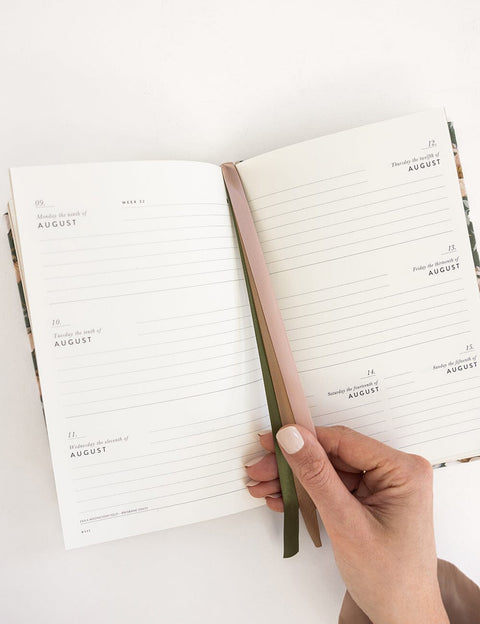 09.
WEEK 32
Monday the ninth of
AUGUST
10.
Tuesday the tenth of
AUGUST
11.
Wednesday the eleventh of
AUGUST
12.
Thursday the twelfth of
AUGUST
13.
Friday the thirteenth of
AUGUST
14.
Saturday the fourteenth of
AUGUST
15.
Sunday the fifteenth of
AUGUST